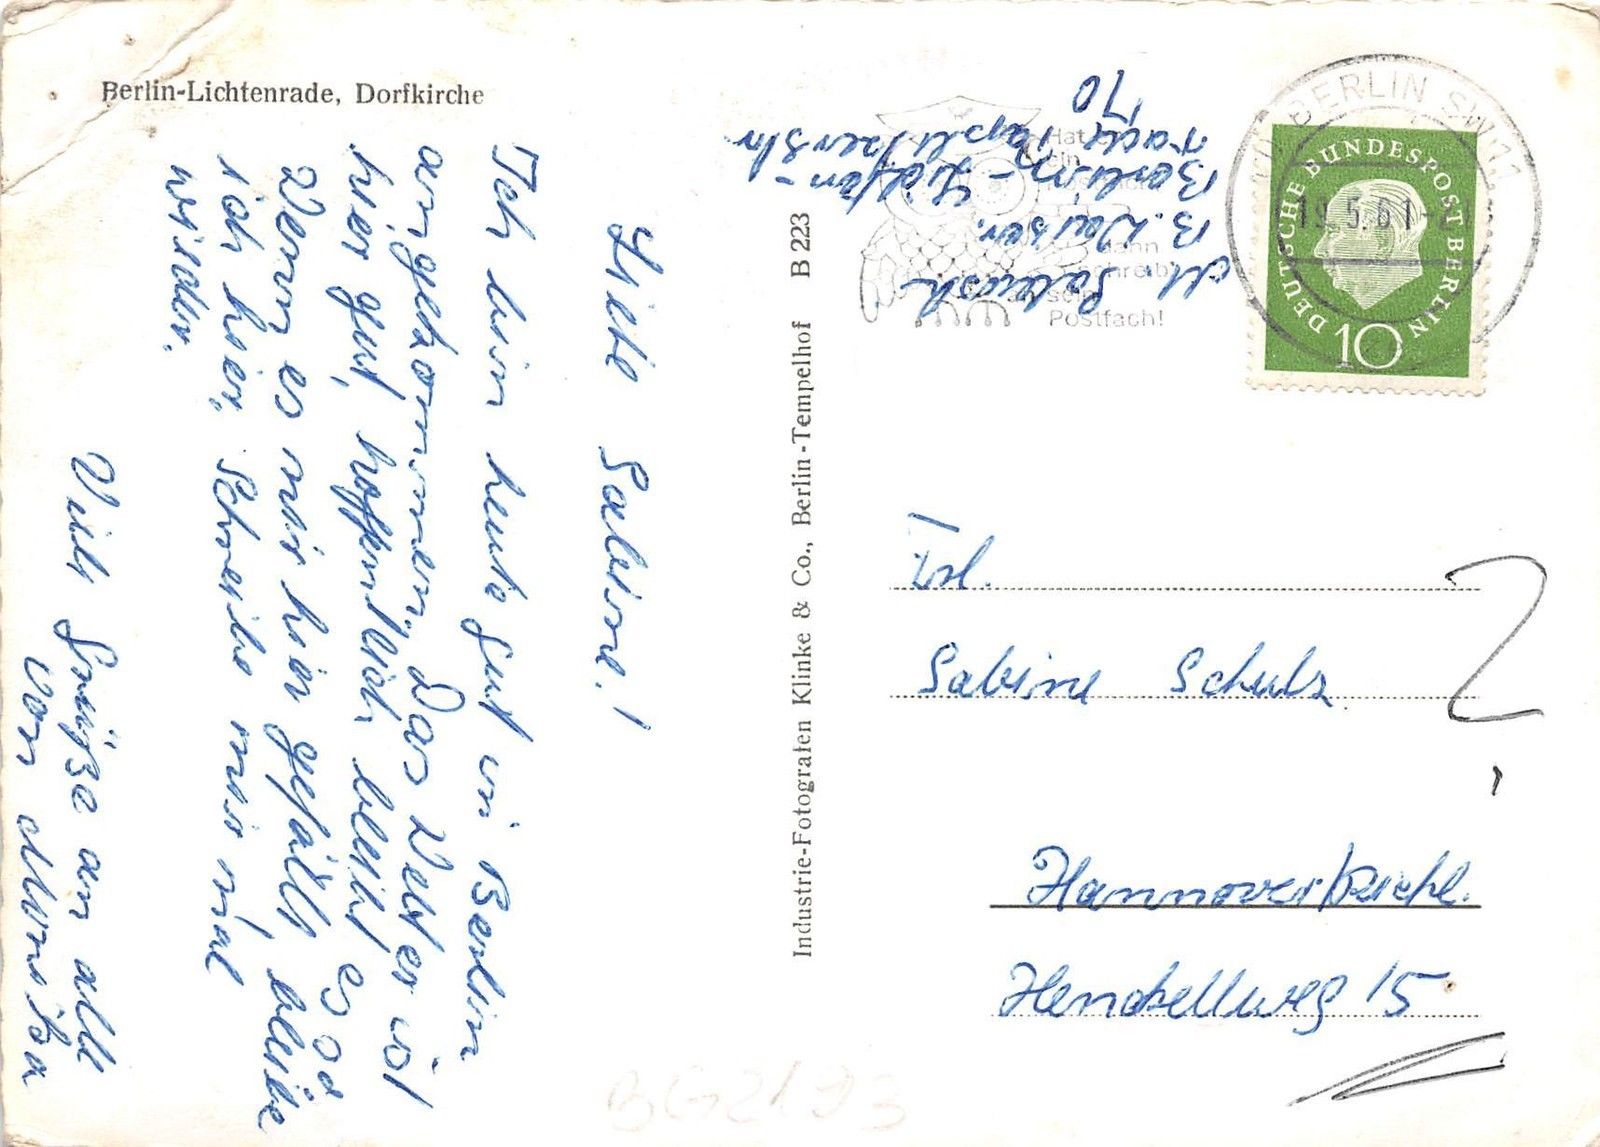 Berlin-Lichtenrade, Dorfkirche
Liebe Sabine!
Ich bin heute gut in Berlin
angekommen. Das Wetter ist
hier gut, hoffentlich bleibt es so
Wenn es mir hier gefällt, bleibe
ich hier. Schreibe mir mal
wieder.
Viele Grüße an alle
von Monika
Industrie-Fotografen Klinke & Co., Berlin-Tempelhof B 223
M.
B.
Berlin-Lichten-
rade
70
Hat
dann
schreib
Postfach!
BERLIN SW 11
19.5.61
DEUTSCHE BUNDESPOST BERLIN
10
Frl.
Sabine Schulz
?
Hannover/Kirchr.
Henckellweg 15
BG2193